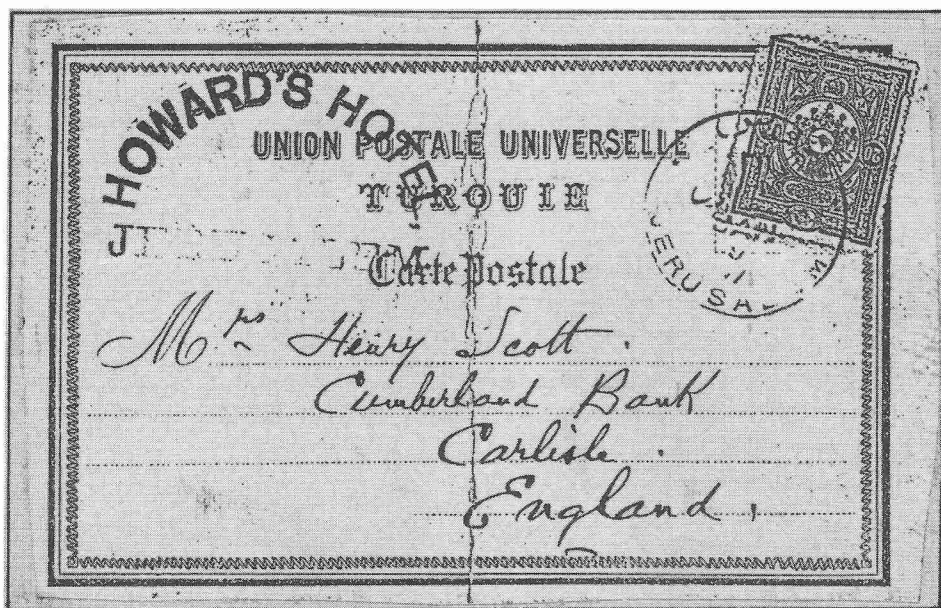 HOWARD'S HOTEL
UNION POSTALE UNIVERSELLE
TURQUIE
Carte Postale
Mrs Henry Scott.
Cumberland Bank
Carlisle.
England.